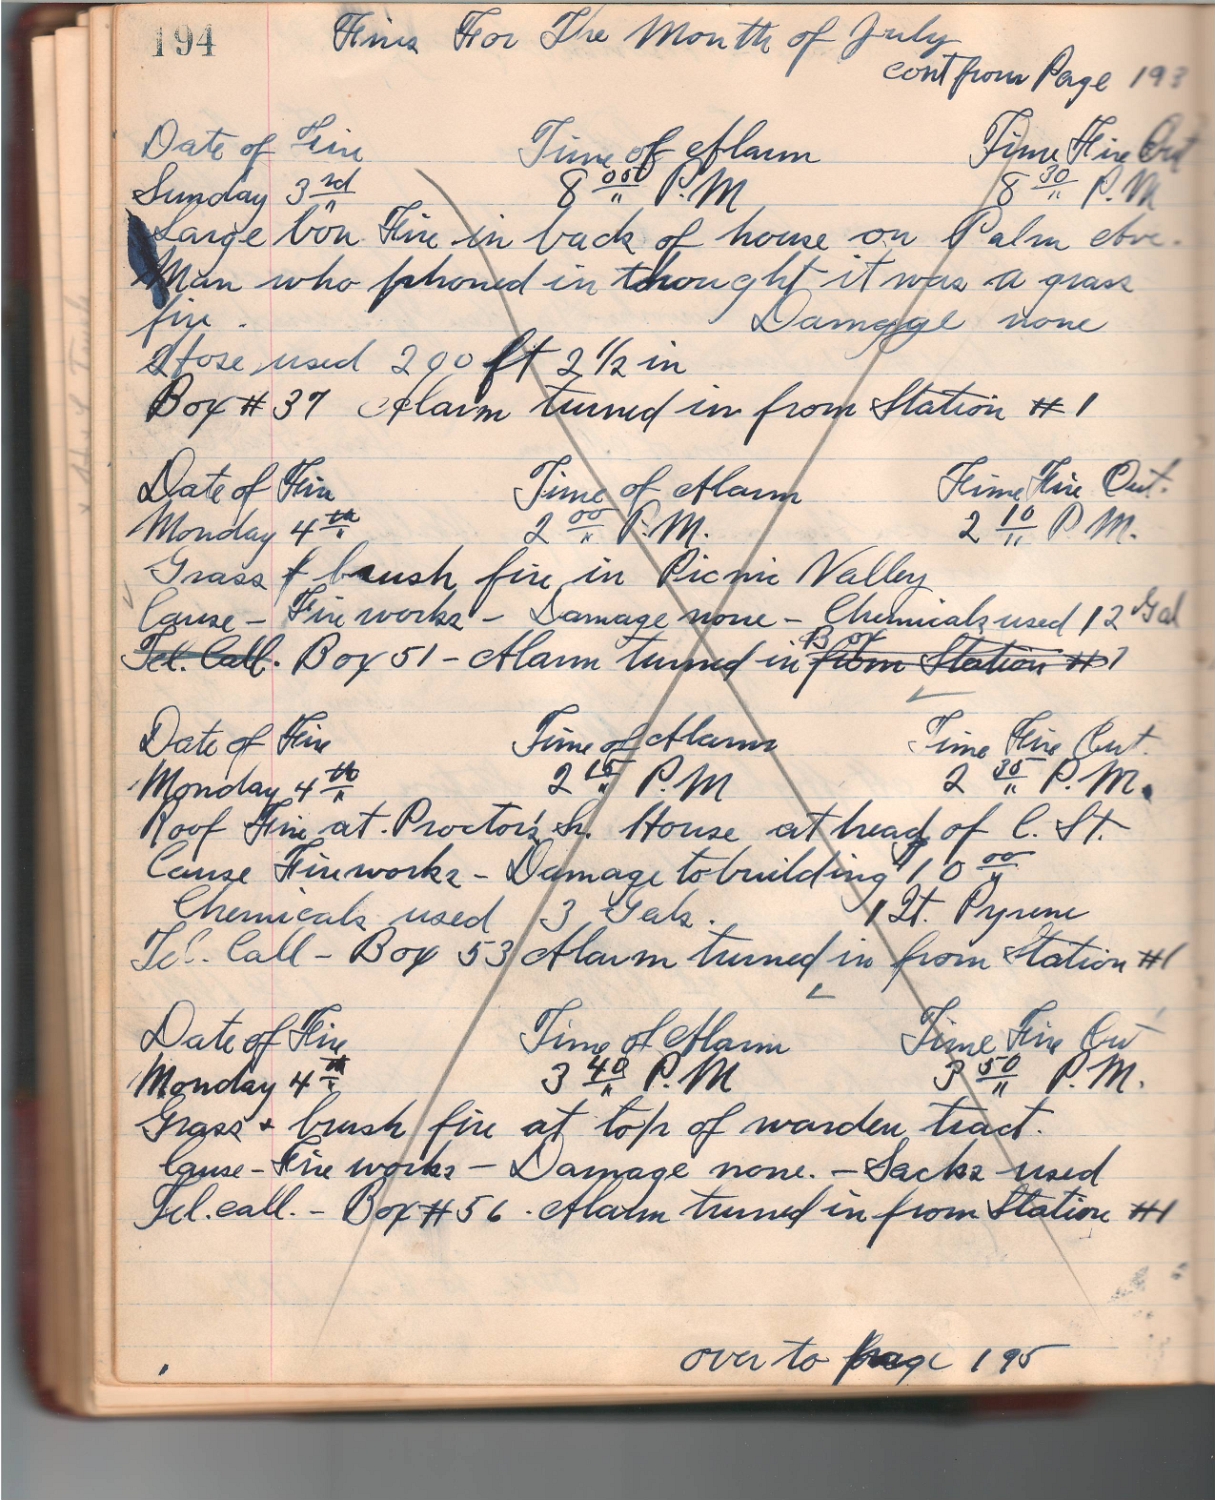 194 Fires For The Month of July
cont from Page 193
Date of Fire Time of Alarm Time Fire Out
Sunday 3rd 8 00 P.M 8 30 P.M
Large bon Fire in back of house on Palm Ave.
Man who phoned in thought it was a grass
fire. Damage none
Hose used 200 ft 2 1/2 in
Box # 37 Alarm turned in from Station #1
Date of Fire Time of Alarm Time Fire Out.
Monday 4th 2 00 P.M. 2 10 P.M.
Grass & brush fire in Picnic Valley
Cause - Fire works - Damage none - Chemicals used 12 Gal
Tel. Call. Box 51 - Alarm turned in Box from Station #1
Date of Fire Time of Alarm Time Fire Out.
Monday 4th 2 15 P.M 2 35 P.M.
Roof Fire at Proctor's House at head of C. St.
Cause Fireworks - Damage to building 10 00
Chemicals used 3 Gals. 1 Qt. Pyrene
Tel. Call - Box 53 Alarm turned in from Station #1
Date of Fire Time of Alarm Time Fire Out
Monday 4th 3 40 P.M 3 50 P.M.
Grass + brush fire at top of warden tract.
Cause - Fire works - Damage none. - Sacks used
Tel. call. - Box #56. Alarm turned in from Station #1
over to page 195